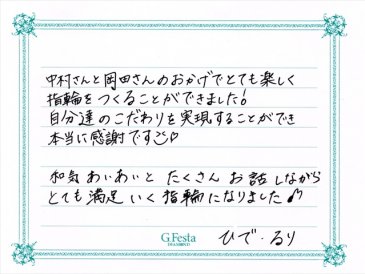 中村さんと岡田さんのおかげでとても楽しく
指輪をつくることができました!
自分達のこだわりを実現することができ
本当に感謝です
和気あいあいとたくさんお話しながら
とても満足いく指輪になりました♪
G.Festa
DIAMOND
ひで・るり